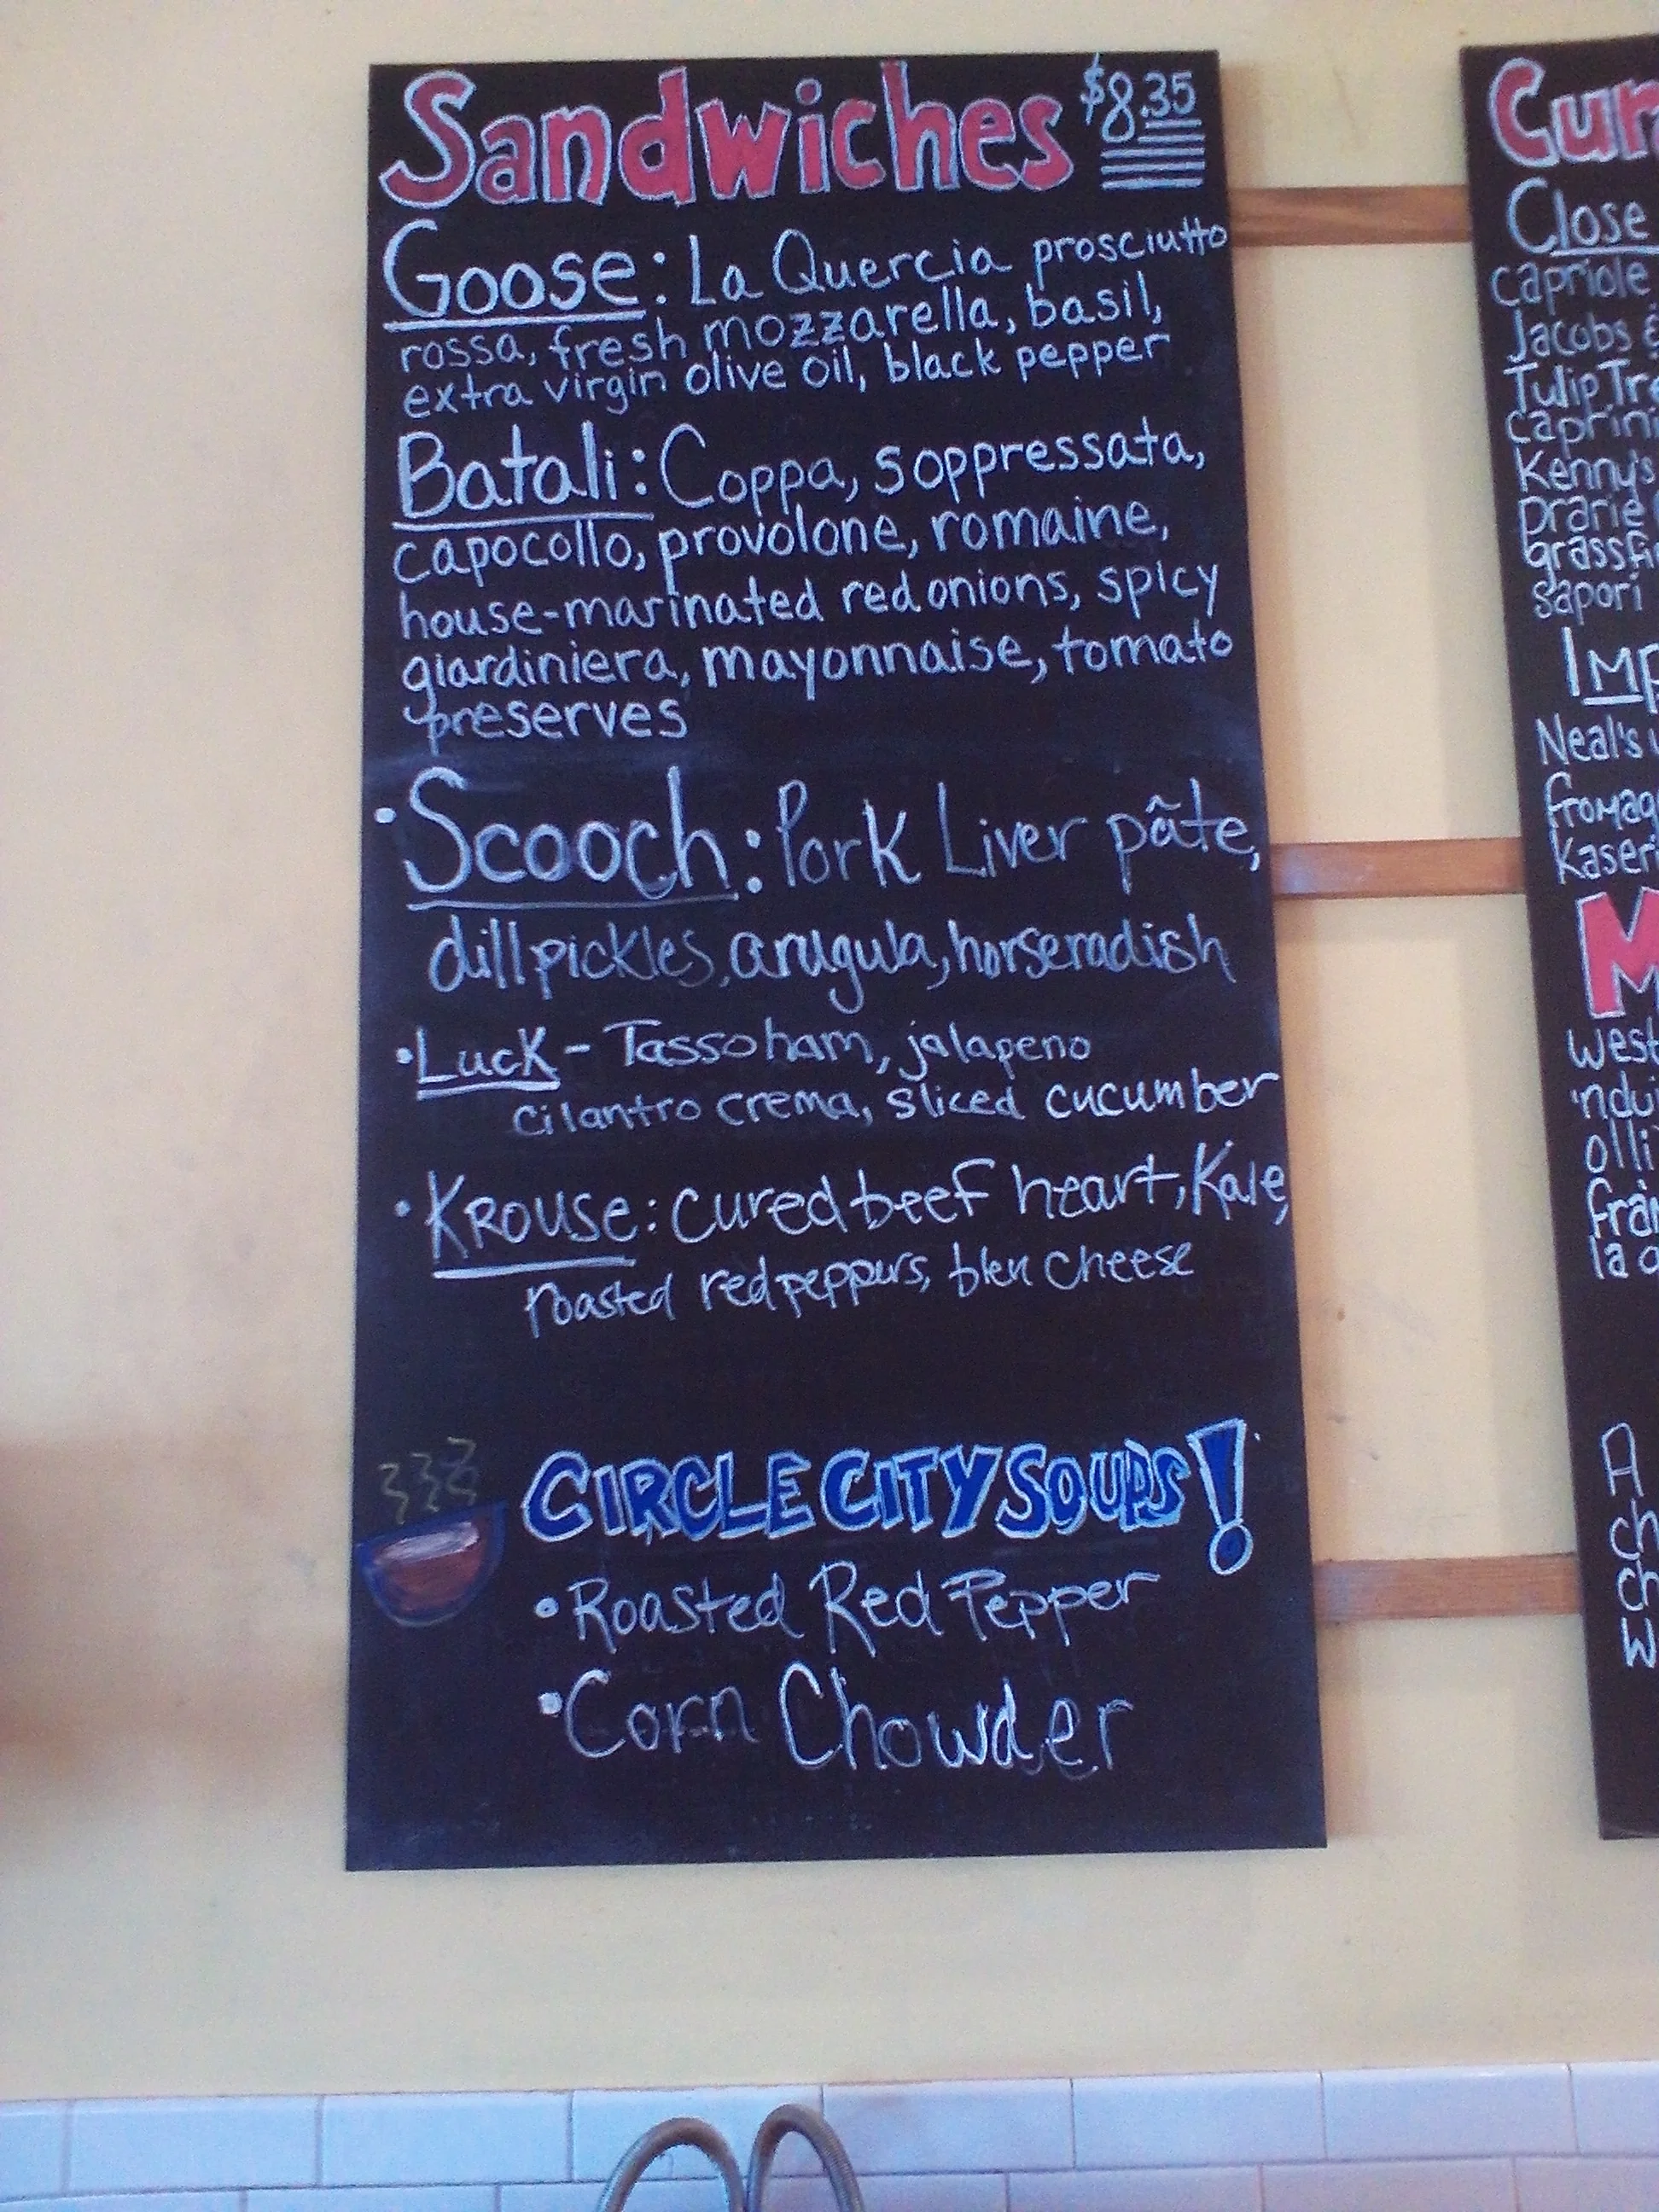 Sandwiches $8.35
Goose: La Quercia prosciutto
rossa, fresh mozzarella, basil,
extra virgin olive oil, black pepper
Batali: Coppa, soppressata,
capocollo, provolone, romaine,
house-marinated red onions, spicy
giardiniera, mayonnaise, tomato
preserves
•Scooch: Pork Liver pâte,
dill pickles, arugula, horseradish
•Luck - Tasso ham, jalapeno
cilantro crema, sliced cucumber
•Krouse: cured beef heart, Kale,
roasted red peppers, bleu cheese
CIRCLE CITY SOUPS!
•Roasted Red Pepper
•Corn Chowder
Cur
Close
capriole
Jacobs &
Tulip Tre
caprini
Kenny's
prarie
grassfi
sapori
Imp
Neal's
fromag
kaseri
M
west
'ndui
olli
fra
la
A
ch
ch
w